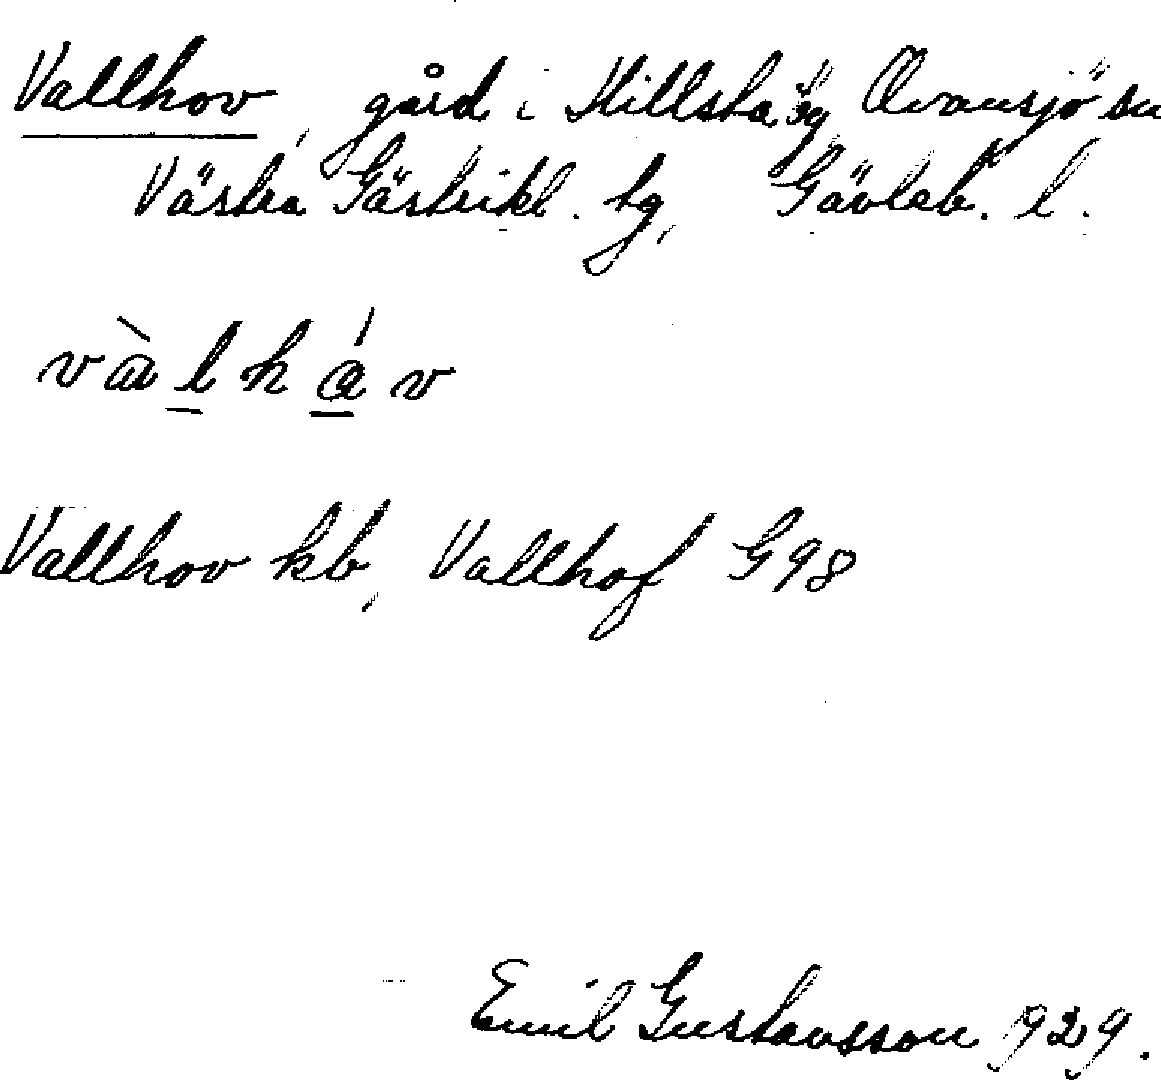 Vallhov, gård i Hillsta, by Ovansjö sn
Västra Gästrikl. tg, Gävleb. l.
vàlháv
Vallhov kb, Vallhof G98
Emil Gustavsson 1929.